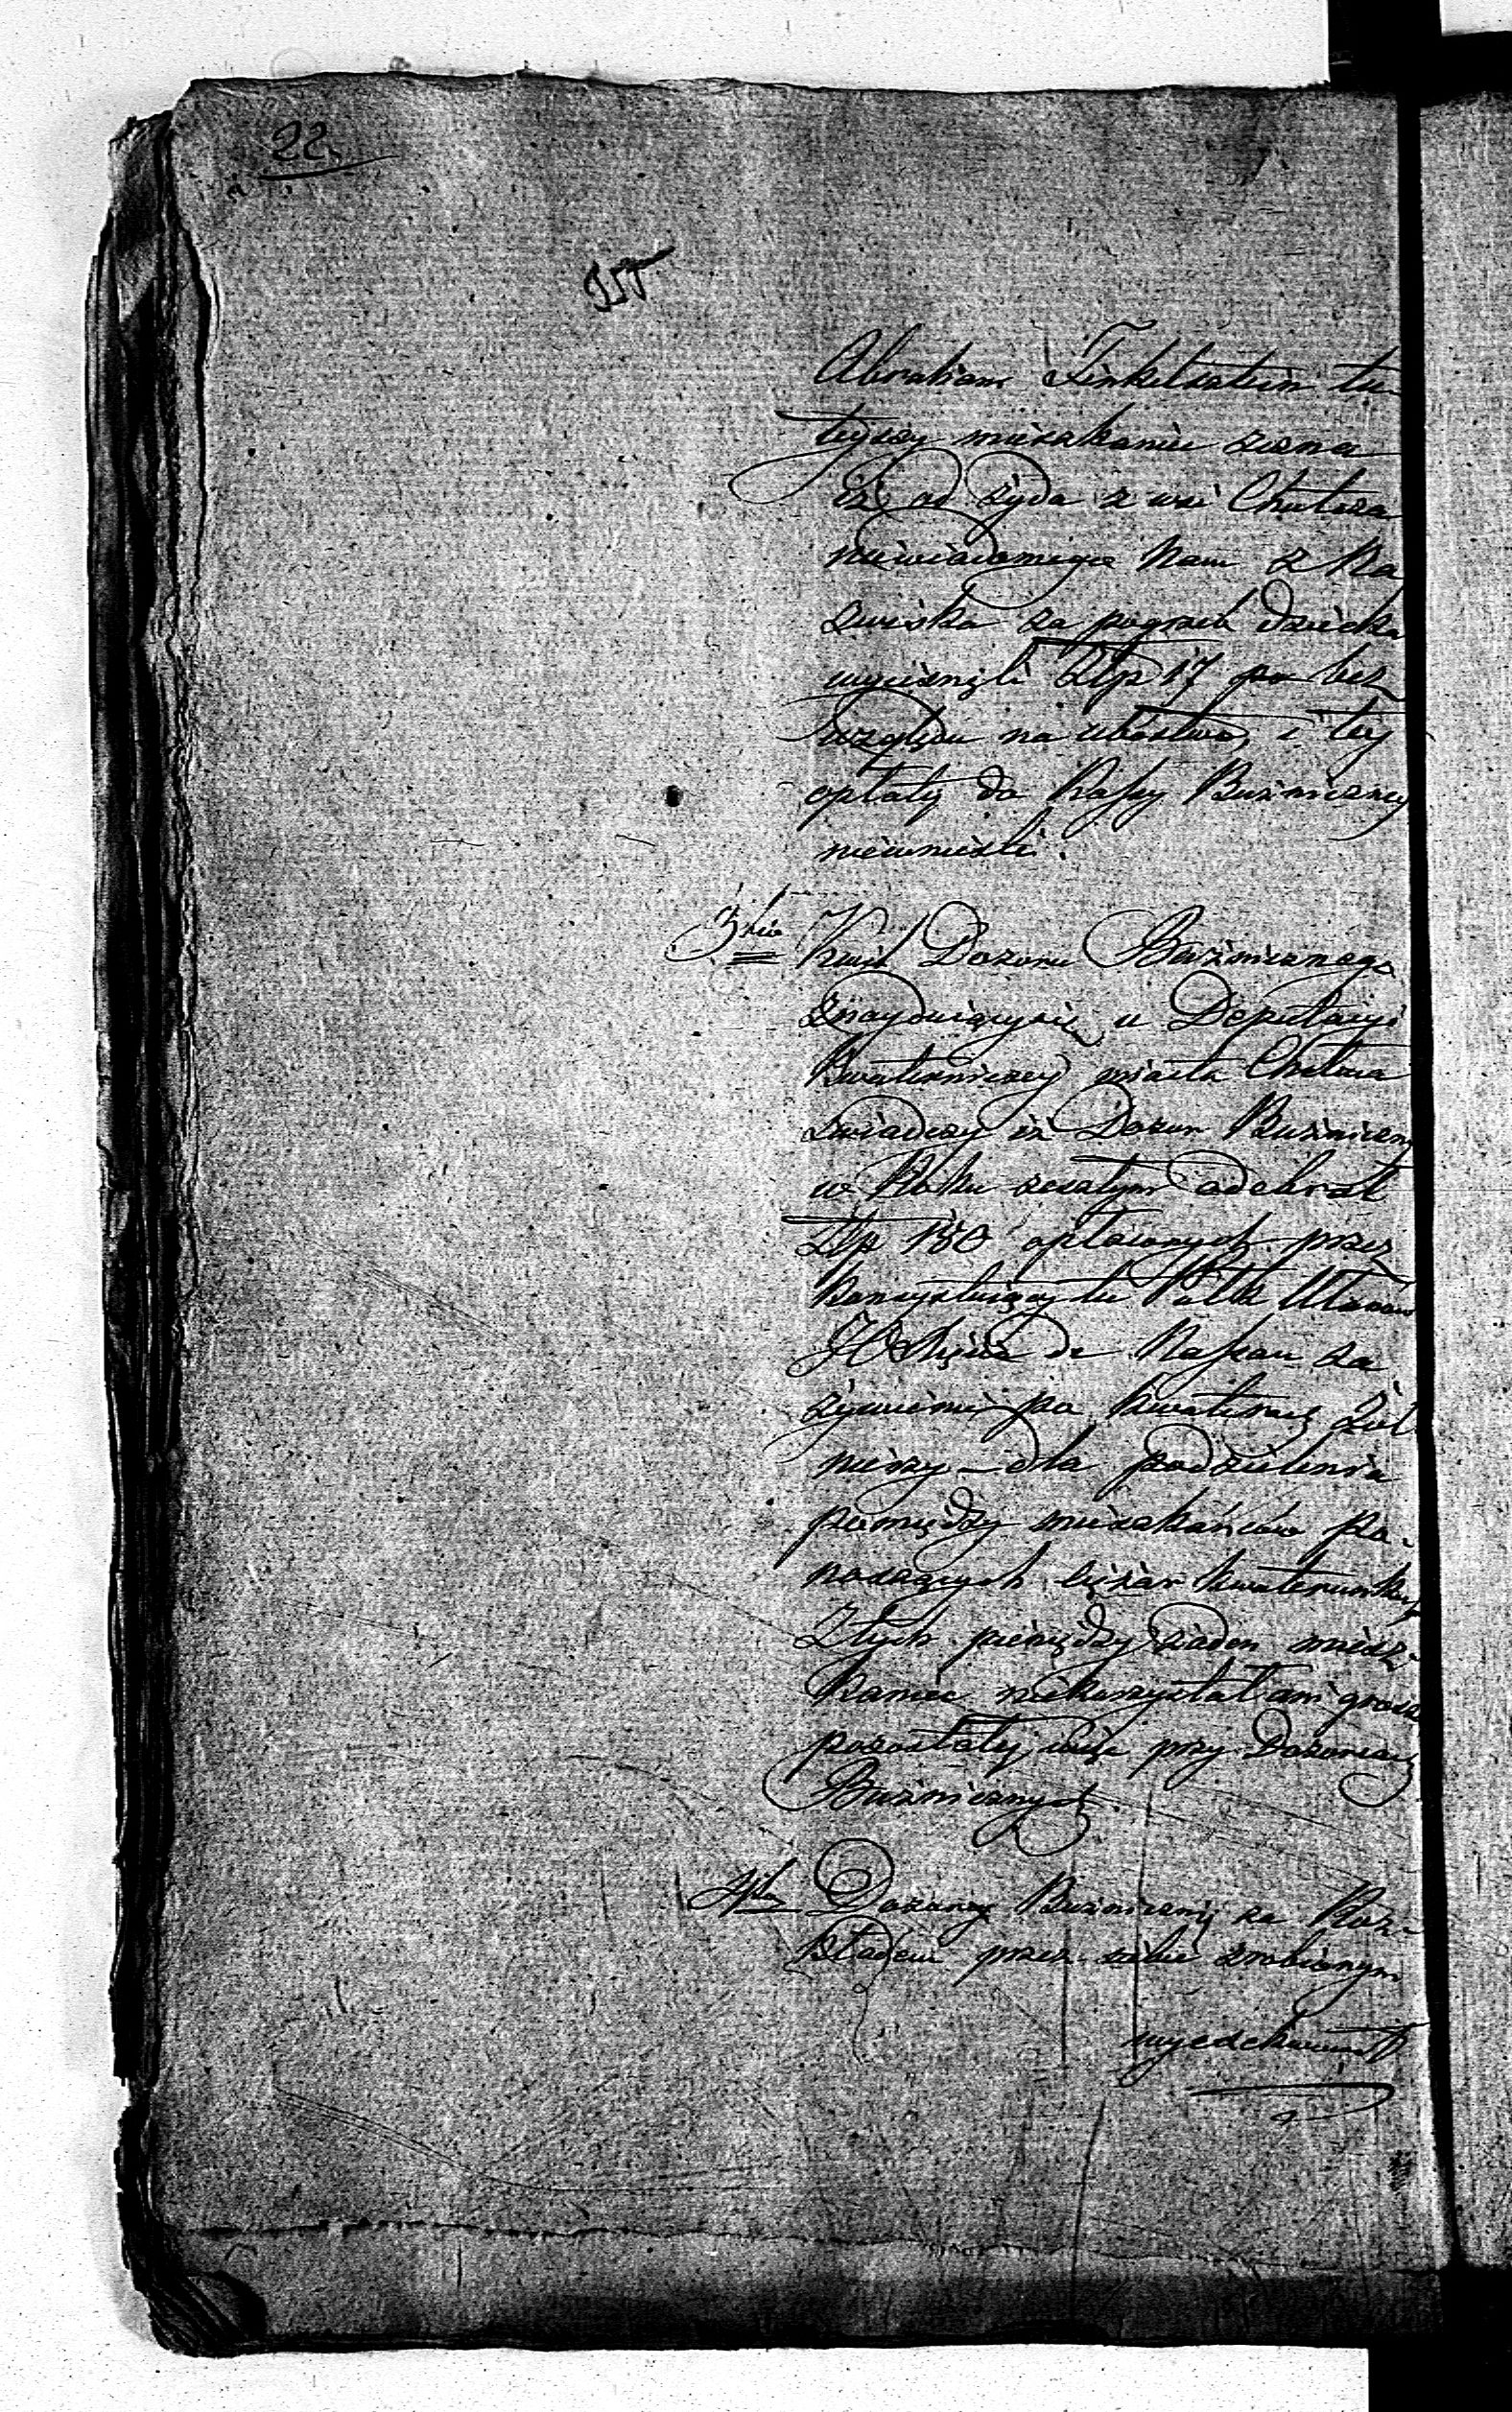 22
255
Abraham Finkelsztein tu
teyszy mieszkaniec zezna
iż od Żyda z wsi Chutcza
niewiadomego Nam z Na
zwiska za pogrzeb dziecka
wycisnęli Złp 17 po bez
względu na ubóstwo, i tey
opłaty do Kassy Bużniczney
niewnieśli.
3tio Kwit Dozoru Bużnicznego
znayduiący się u Deputacyi
Kwaterniczey miasta Chełma
świadczy iż Dozur Bużniczny
w Roku zeszłym odebrał
Złp 180 opłaconych przez
konsystuiący tu Półk Ułanów
JO Xięcia de Nassau za
żywienie po kwaterach Żoł
nierzy – dla podzielenia
pomiędzy mieszkańców po-
noszących ciężar kwaterunku
Z tych pieniędzy żaden miesz-
kaniec niekorzystał ani grosza
pozostały więc przy Dozorcach
Bużnicznych.
4to Dozorcy Bużniczni za Roz-
kładem przez siebie zrobionym